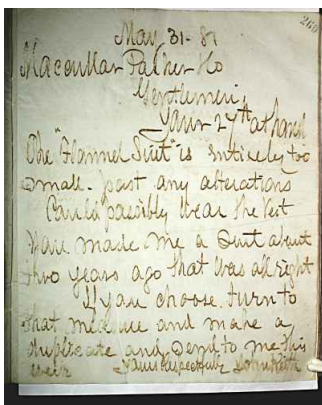 260
May 31-87
Macullar Parker & Co
Gentlemen,
Yours 27th at hand
The "Flannel Suit" is entirely too
small - past any alterations
Could possibly wear the Vest
You made me a Suit about
two years ago that was all right
If you choose turn to
that measure and make a
duplicate and send to me this
week Yours respectfully John Keith